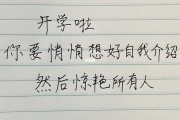 开学啦
你要悄悄想好自我介绍
然后惊艳所有人